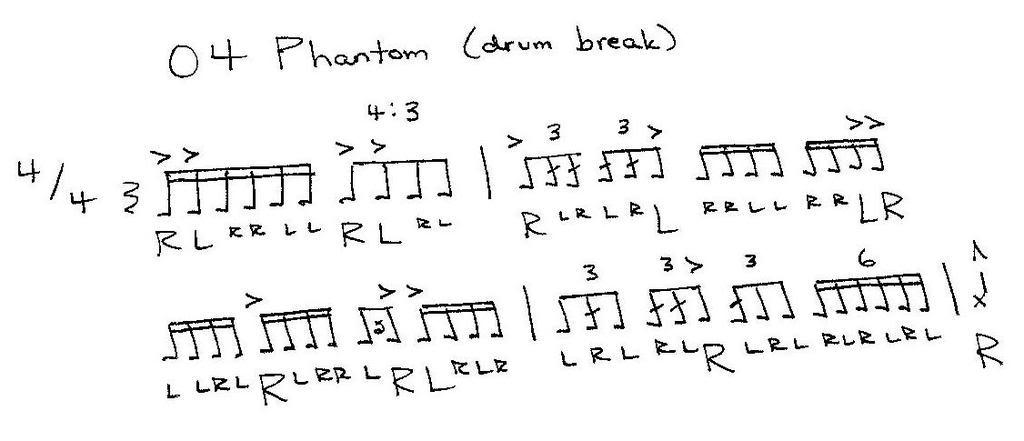 04 Phantom (drum break)
4:3
> > > > > 3 3 > >>
4/4
R L R R L L R L R L R L R L R L R R L L R R L R
> > > 3 3 > 3 6
L L R L R L R R L R L R L R L R L R L R L R L R L R L R L R